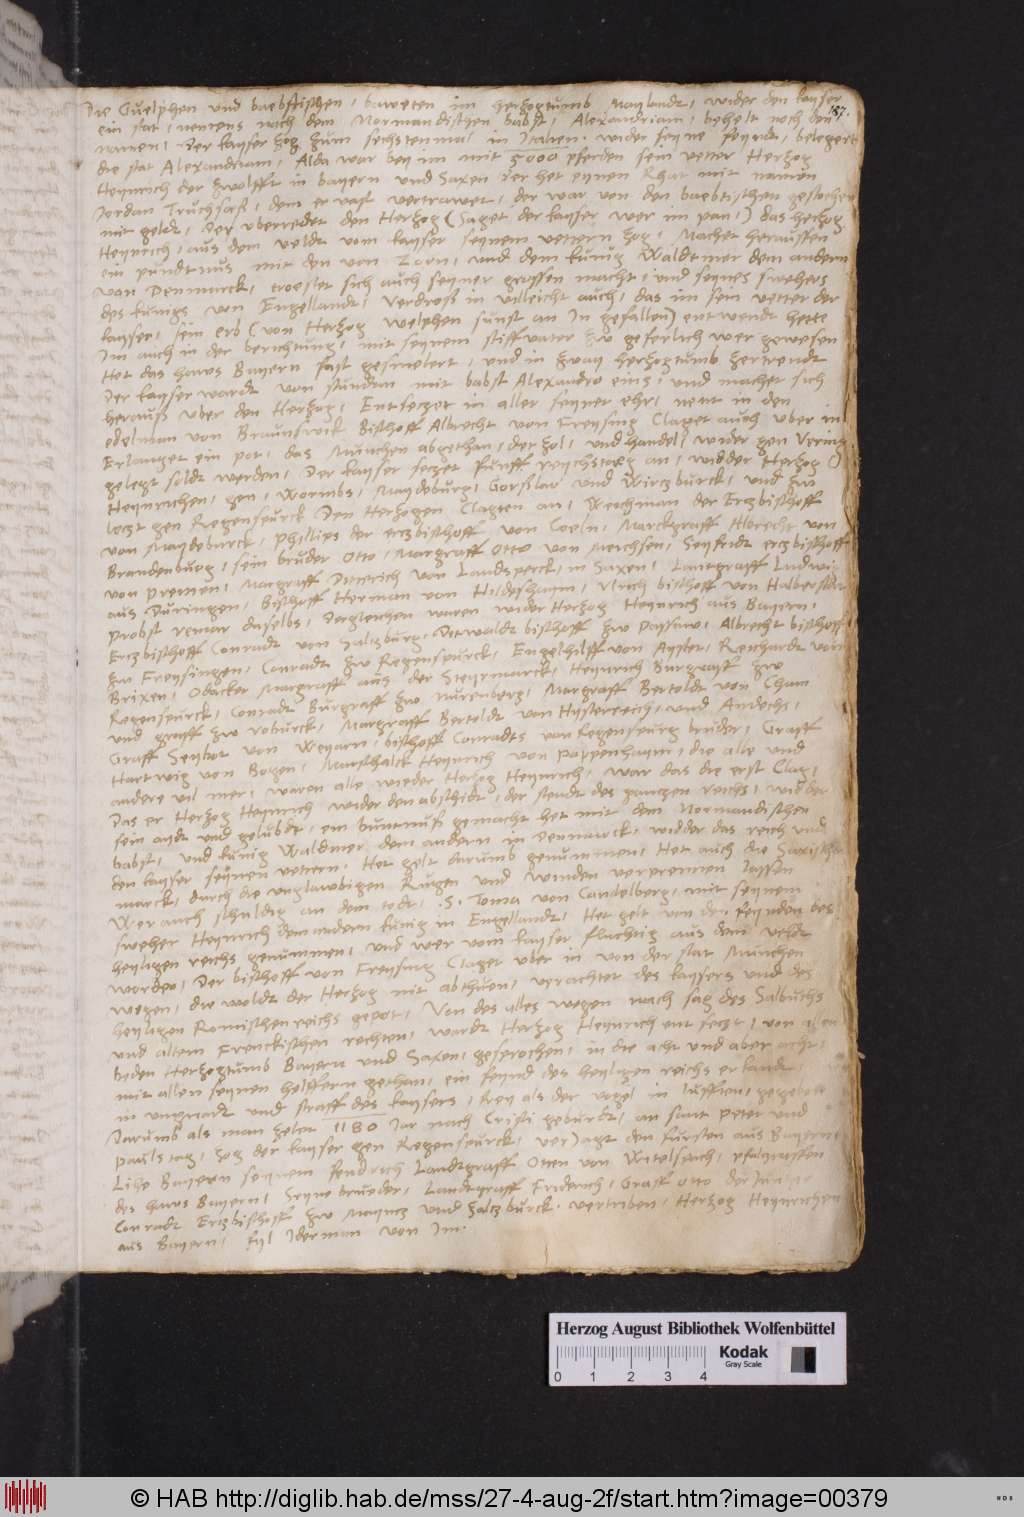 187.
Die Guelphen und baebstischen, baweten im herzogtumb Maylandt, wider den kayser
ein stat, nenens nach dem Normandischen babst, Alexandriam, behelt noch den
namen, Der kayser zog zum sechsten mal in Italien, wider seyne feyndt, belegert
die stat Alexandriam, Alda war bey im mit 5000 pferden sein vetter Herzog
Heynrich der zwolfft in bayern und Saxen der het eynen Rhat mit namen
Jordan Truchsess, dem er vast vertrawet, der war von den baebstischen gestochen
mit geldt, Der uberredet den Herzog (saget der kayser wer im pan,) das herzog
Heynrich, aus dem veldt vom kayser seynem vettern zog, Machet heraussen
ein pundtnus mit den von Zorn, und dem kunig Waldtmer dem andern
von Denmarck, troestet sich auch seyner grossen macht, und seynes swehers
des kunigs von Engellandt, Verdross in villeicht auch, das im sein vetter der
kayser, sein erb (von Herzog welphen sunst an In gefallen) entwendt hette
Im auch in der berichtung, mit seynem stiffvater zw geferlich wer gewesen
Het das haws Bayern fast gesmelert, und in zway herzogtumb zertrendt
Der kayser wardt von stundan mit babst Alexandro eins, und machet sich
herauss uber den Herzog, Entsetzet in aller seyner ehr, nent in den
edelman von Braunswik Bischoff Albrecht von Freysing Claget auch uber in
Erlanget ein pot, das Munchen abgethan, der zol, und handel, wider gen Vering
gelegt soldt werden, Der kayser setzet funff reychstaeg an, widder Herzog
Heynrichen, gen, Wormbs, Maydeburg, Gosslar und Wirtzburck, und zw
letzt gen Regenspurck Den Herzogen Clagten an, Weichman der Ertzbischoff
von Maydeburck, Phillips der ertzbischoff von Coeln, Marckgraff Albrecht von
Brandenburg, sein bruder Otto, Margraff Otto von Meichsen, Seyfridt ertzbischoff
von premen, Margraff Dietrich von Landsperck, in Saxen, Lantgraff Ludwig
aus Duringen, Bischoff Herman von Hildeshaym, Ulrich bischoff von Halberstat
Probst daselbs, Dergleichen waren wider Herzog Heynrich aus Bayern,
Ertzbischoff Conradt von Saltzburg, Diewaldt bischoff zw Passaw, Albrecht bischoff
zw Freysingen, Conradt zw Regenspurck, von Reichardt von
Brixen, Odacker Margraff aus der Steyrmarck, Heynrich Burggraff zw
Regenspurck, Conradt Burgraff zw Nurenberg, Margraff Bertoldt von Cham
und graff zw voburck, Margraff Bertoldt von Hystereich, und Andechs,
Graff von Weyarn, bischoff Conradts von Regenspurg bruder, Graff
Hartwig von Bogen, Marschalck Heynrich von pappenhaym, die alle und
andere vil mer, waren alle wieder Herzog Heynrich, war das die erst Clag,
Das er Herzog Heynrich wider den abschidt, der stendt des gantzen reichs, widder
sein aydt und gelubdt, ein buntnuss gemacht het mit dem Normandischen
babst, und kunig Waldmer dem andern in Denmarck, widder das reich und
den kayser seynen vettern, Het gelt darumb genummen, Het auch die Saxischen
marck, durch die unglawbigen Rugen und Winden verprennen lassen
Wer auch schuldig an dem todt, .S. Toma von Candelberg, mit seynem
sweher Heynrich dem andern kunig in Engellandt, Het gelt von den feynden des
heyligen reichs genummen, und wer vom kayser fluchtig aus dem veldt
worden, Der bischoff von Freysing Claget uber in von der stat Munchen
wegen, die woldt der Herzog nit abthuen, verachtet des kaysers und des
heyligen Romischen reichs gepot, Von des alles wegen nach sag des Salbuchs
und altem Frenckischen rechten, wardt Herzog Heynrich entsetzt, von allen
beden Herzogtumb Bayern und Saxen, gesprochen, in die acht und aber acht,
mit allen seynen helffern gethan, ein feynd des heyligen reichs erkandt,
in ungnadt und straff des kaysers, frey als der vogel in lufften, gegeben
Darumb als man zelet 1180 Jar nach Cristi geburdt, an sant peter und
pauls tag, zog der kayser gen Regenspurck, verjagt den fursten aus Bayern,
Lihe Bayern seynem fendrich Landtgraff Otten von Witelspach, pfaltzgraffen
des haws Bayern, Seyne brueder, Landtgraff Friderich, Graff Otto der
Conradt Ertzbischoff zw Mayntz und Saltzburck, vertriben, Herzog Heynrichen
aus Bayern, fyl Iderman von Im.
Herzog August Bibliothek Wolfenbüttel
Kodak
Gray Scale
0 1 2 3 4
© HAB http://diglib.hab.de/mss/27-4-aug-2f/start.htm?image=00379